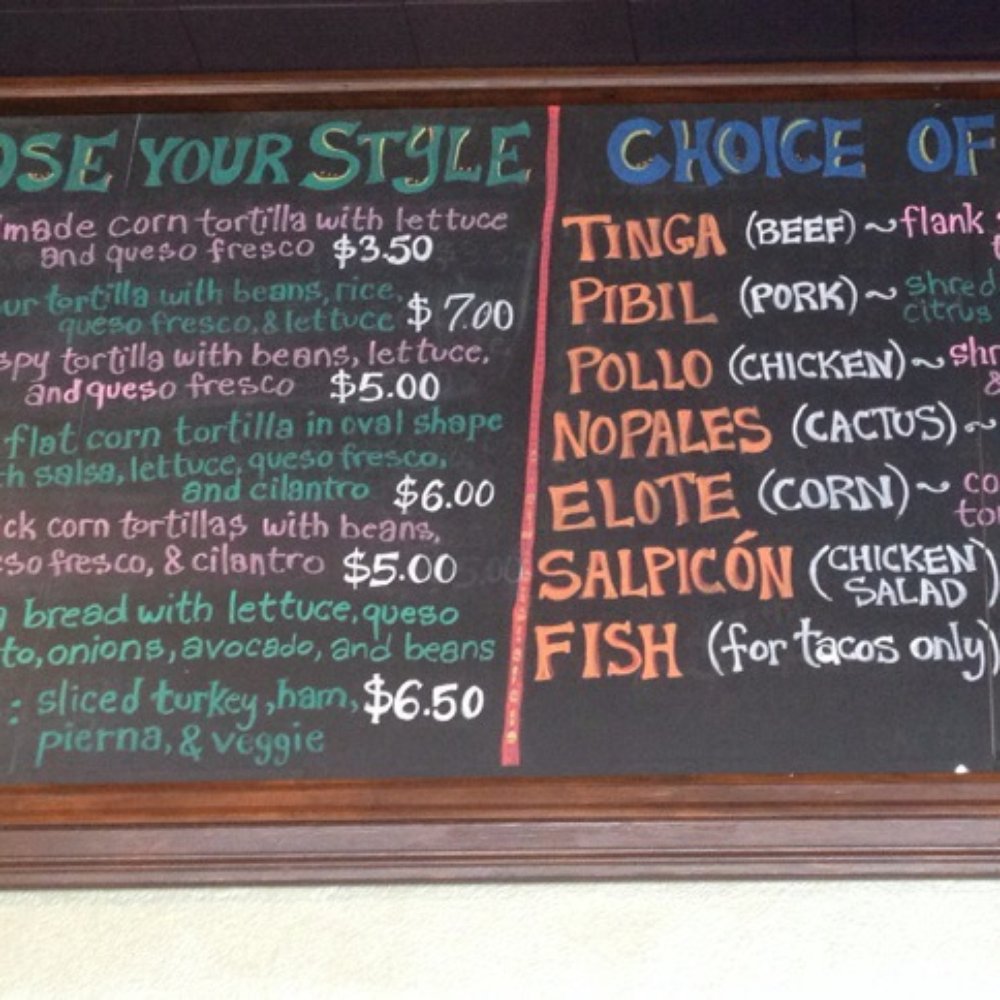 OSE YOUR STYLE
made corn tortilla with lettuce
and queso fresco $3.50
ur tortilla with beans, rice,
queso fresco, & lettuce $7.00
spy tortilla with beans, lettuce,
and queso fresco $5.00
flat corn tortilla in oval shape
th salsa, lettuce, queso fresco,
and cilantro $6.00
ick corn tortillas with beans,
so fresco, & cilantro $5.00
a bread with lettuce, queso
to, onions, avocado, and beans
: sliced turkey, ham, $6.50
pierna, & veggie
CHOICE OF
TINGA (BEEF) ~ flank
PIBIL (PORK) ~ shred
citrus
POLLO (CHICKEN) ~ shr
&
NOPALES (CACTUS) ~
ELOTE (CORN) ~ co
to
SALPICÓN (CHICKEN
SALAD)
FISH (for tacos only)